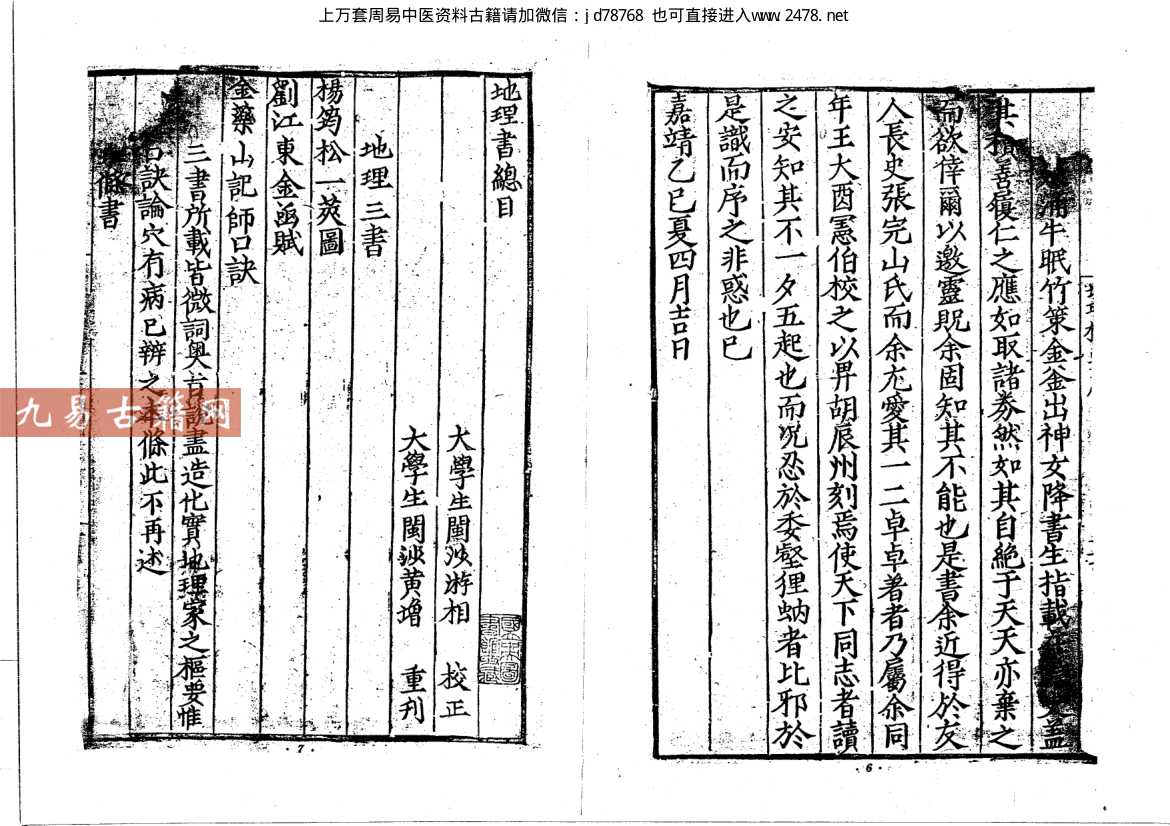 上万套周易中医资料古籍请加微信：jd78768 也可直接进入www.2478.net
牛眠竹策金釜出神女降書生指載
其積善履仁之應如取諸券然如其自絶于天天亦棄之
而欲倖爾以邀靈貺余固知其不能也是書余近得於友
人長史張完山氏而余尤愛其一二卓卓著者乃屬余同
年王大酉憲伯校之以畀胡辰州刻焉使天下同志者讀
之安知其不一夕五起也而况忍於委壑狸蚋者比邪於
是識而序之非惑也已
嘉靖乙巳夏四月吉日
6
地理書總目
大學生閩游相 校正
大學生閩黄增 重刋
地理三書
楊筠松一莢圖
劉江東金函賦
金藥山記師口訣
三書所載皆微詞奥旨説盡造化實地理家之樞要惟
口訣論穴有病已辨之本條此不再述
條書
7
九易古籍网